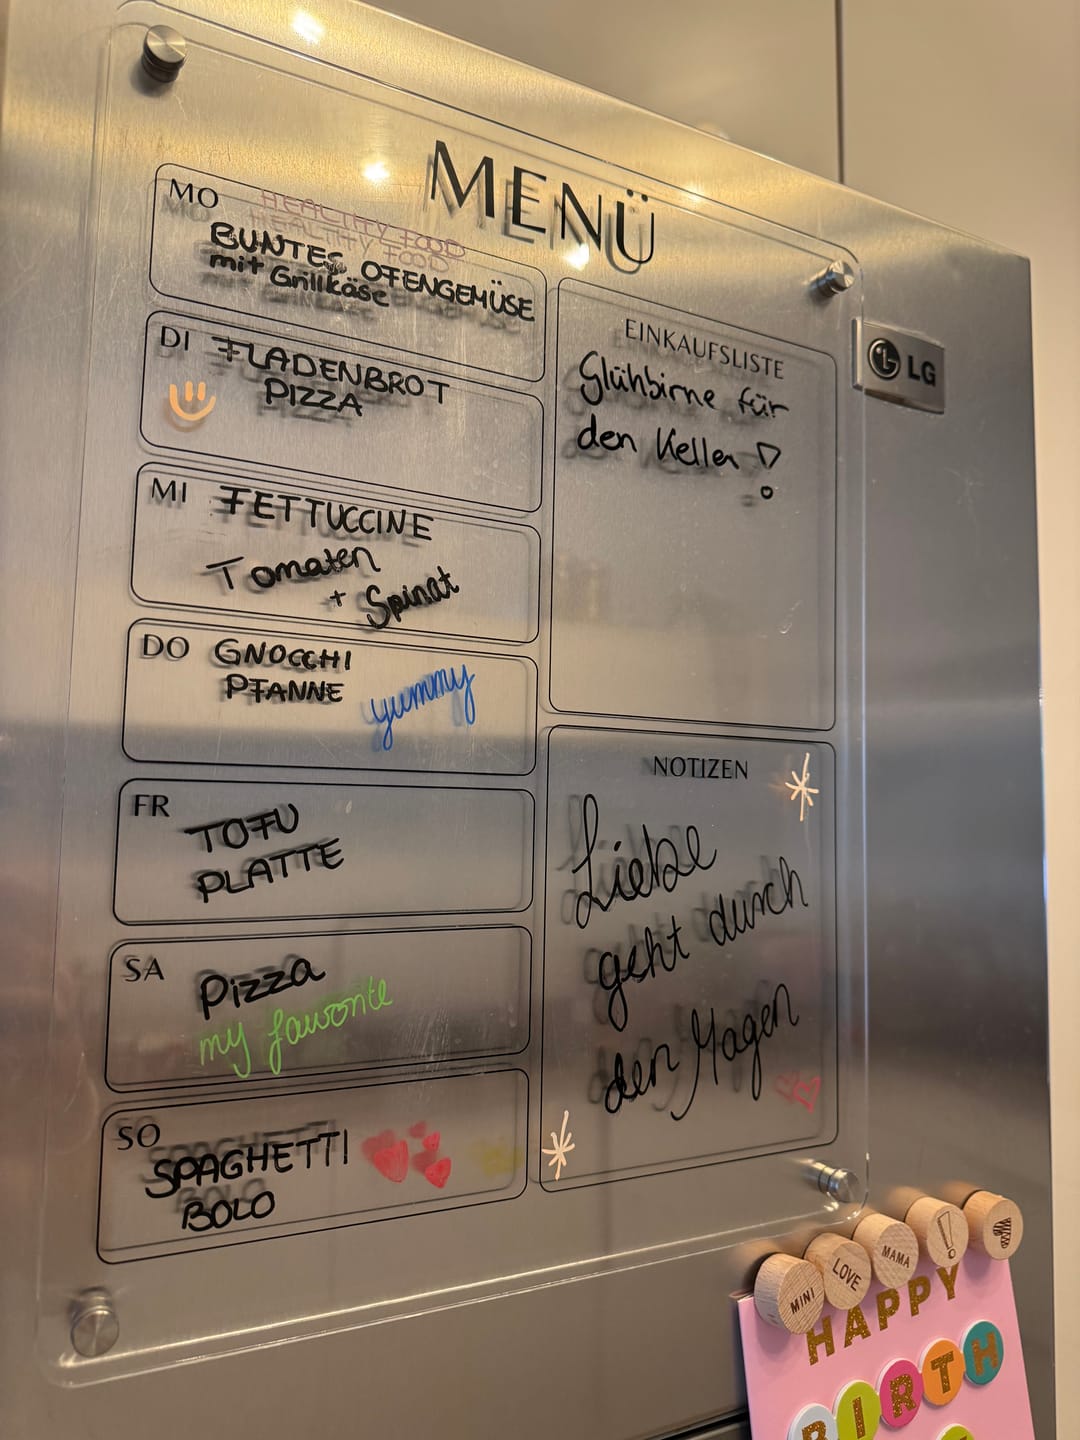 MENÜ
MO
HEALTHY FOOD
BUNTES OFENGEMÜSE
mit Grillkäse
DI
FLADENBROT
PIZZA
MI
FETTUCCINE
Tomaten
+ Spinat
DO
GNOCCHI
PFANNE
yummy
FR
TOFU
PLATTE
SA
Pizza
my favorite
SO
SPAGHETTI
BOLO
EINKAUFSLISTE
Glühbirne für
den Keller !
NOTIZEN
Liebe
geht durch
den Magen
LG
MINI
LOVE
MAMA
!
HAPPY
BIRTH